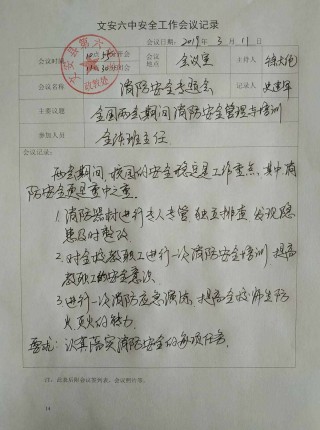 文安六中安全工作会议记录
会议日期: 2019年 3月 11日
会议时间 地点 会议室 主持人
会议名称 消防安全专题会 记录人
主要议题 全国两会期间消防安全管理与培训
参加人员 全体班主任
会议记录:
两会期间,我国的安全稳定是工作重点,其中消
防安全更是重中之重。
1.消防器材进行专人专管,独立排查,发现隐
患及时整改。
2.对全校教职工进行一次消防安全培训,提高
教职工的安全意识。
3.进行一次消防应急演练,提高全校师生防
火灭火的能力。
要求:认真落实消防安全的各项任务。
注:此表后附会议签到表、会议照片等。
14